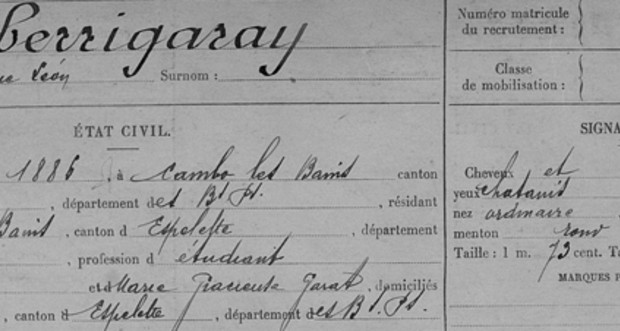 berrigaray
Léon Surnom :
ÉTAT CIVIL.
1886, à Cambo les Bains canton
, département des Bses Py. , résidant
Bains, canton d Espelette , département
, profession d étudiant
et d Marie Gracieuse Garat, domiciliés
, canton d Espelette , département des Bses Py.
Numéro matricule
du recrutement :
Classe
de mobilisation :
SIGNA
Cheveux et
yeux chatains
nez ordinaire
menton rond
Taille : 1 m. 73 cent. Ta
MARQUES P